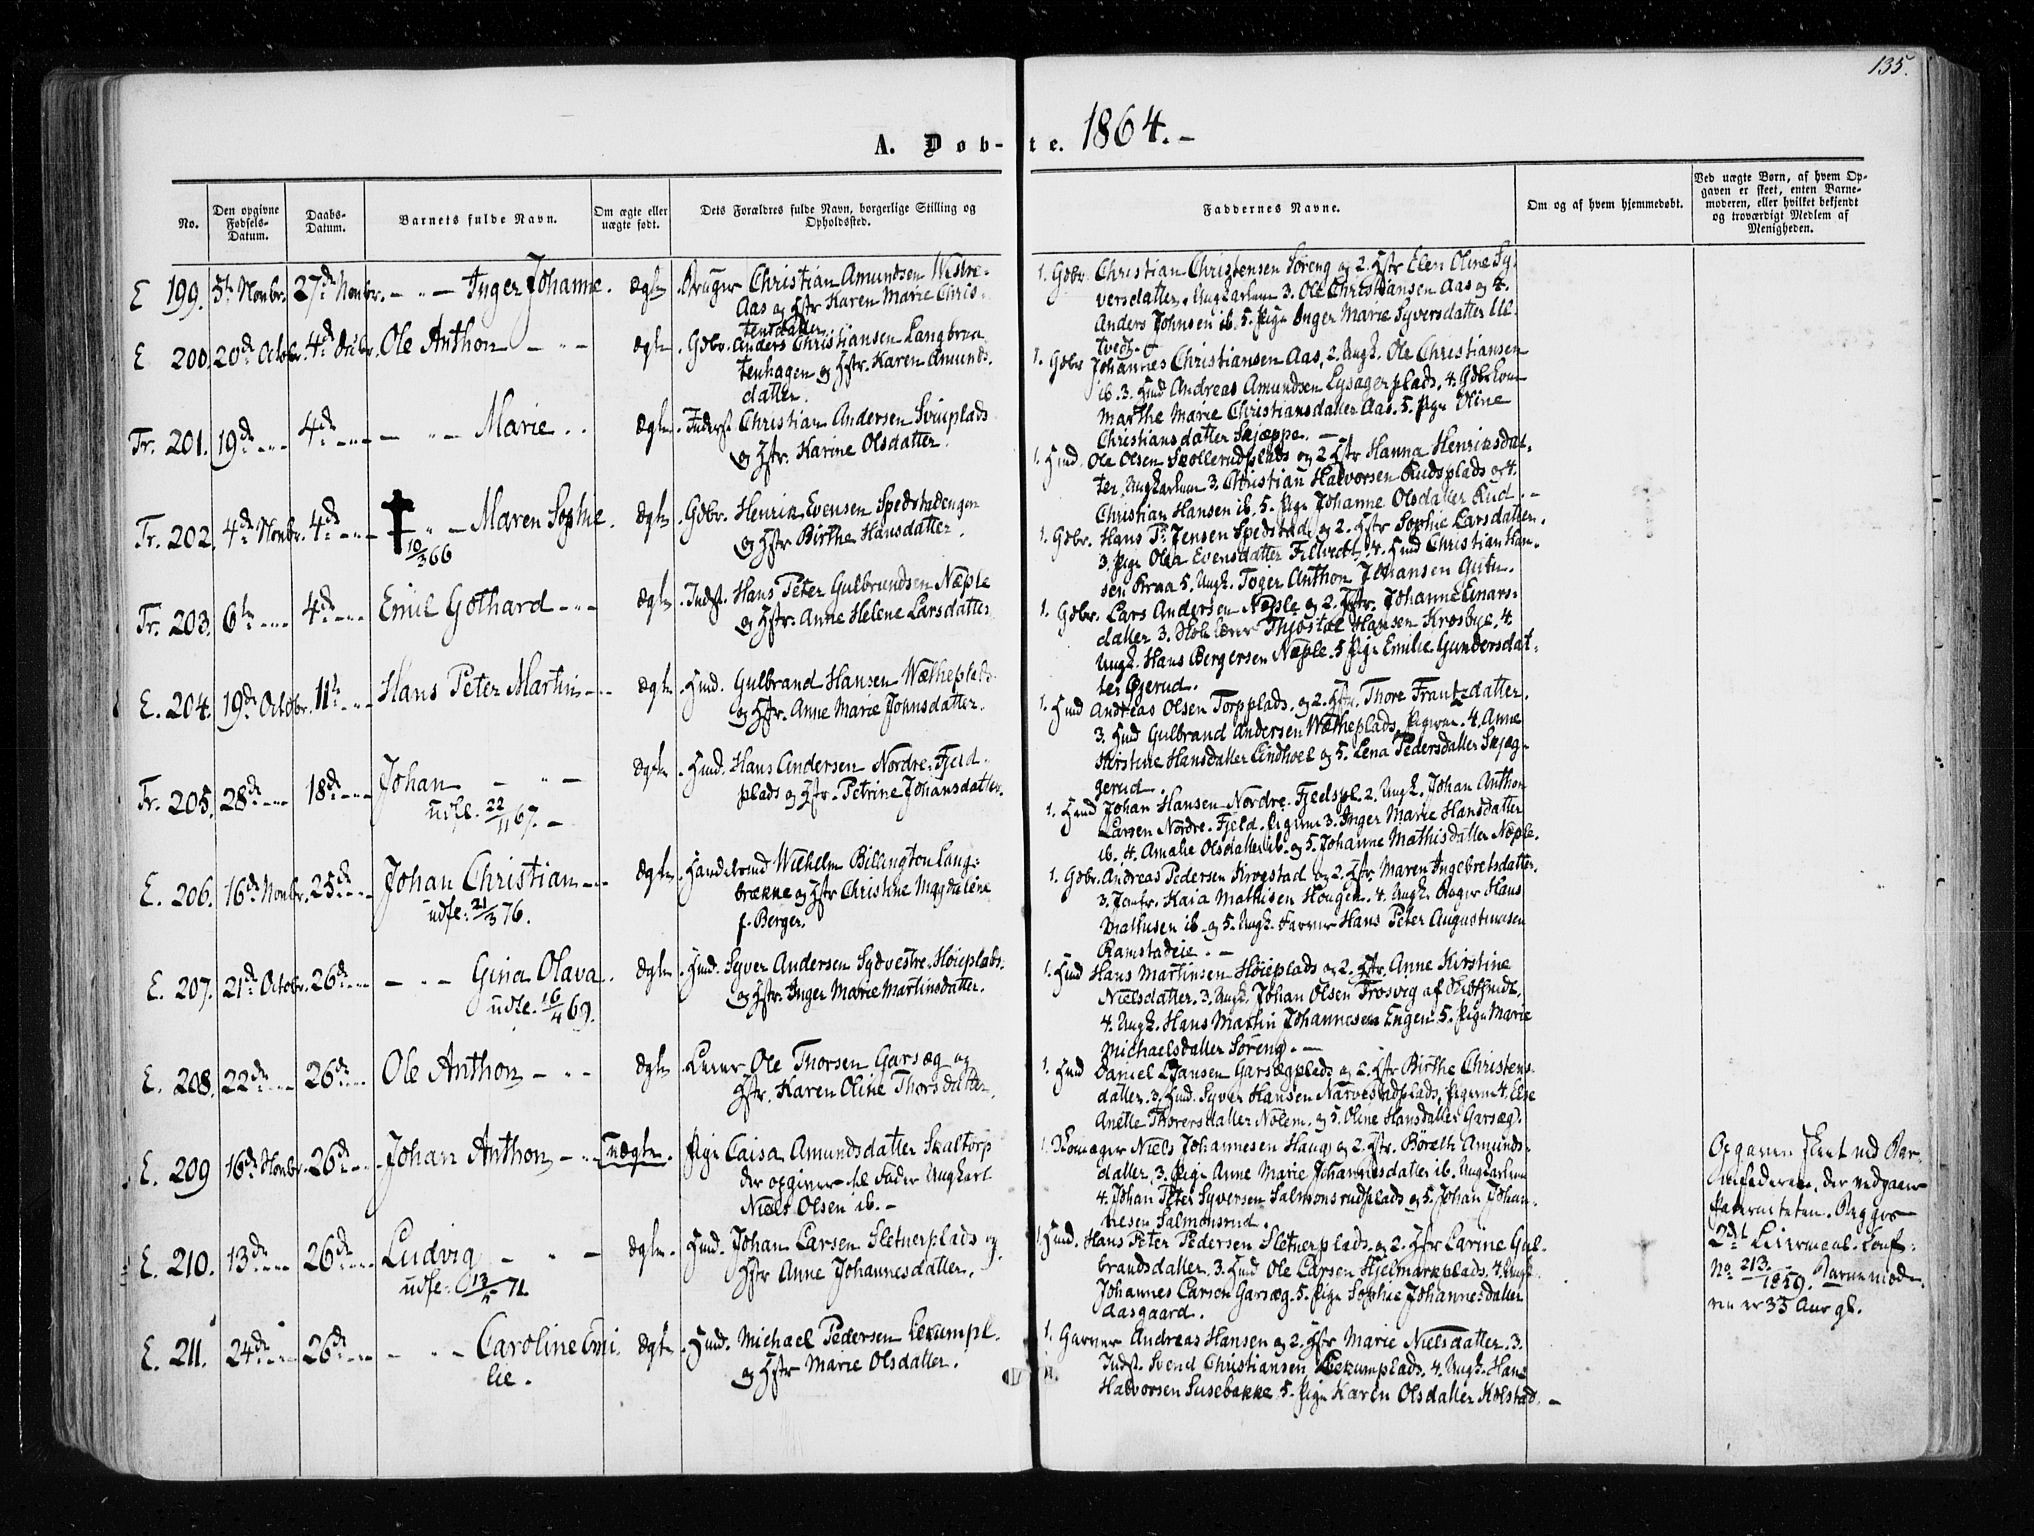 135.
A. Døb-te. 1864.-
No.
Den opgivne
Fødsels-
Datum.
Daabs-
Datum.
Barnets fulde Navn.
Om ægte eller
uægte født.
Dets Forældres fulde Navn, borgerlige Stilling og
Opholdssted.
Faddernes Navne.
Om og af hvem hjemmedøbt.
Ved uægte Børn, af hvem Op-
gaven er skeet, enten Barne-
moderen, eller hvilket bekjendt
og troværdigt Medlem af
Menigheden.
E 199. 5te Novbr. 27de Novbr. - " - Inger Johanne. Ægte. Bruger Christian Amundsen Westre-
Aas og Hstr Karen Marie Chris-
tensdatter
1. Gdbr. Christian Christensen Søreng og 2. Hstr Elen Oline Sy-
versdatter. Ungkarlene 3. Ole Christiansen Aas og 4.
Anders Johnsen ib. 5. Pige Inger Marie Syversdatter Ul-
tvedt.
E 200. 20de Octobr. 4de Dcbr. Ole Anthon - " - Ægte. Gdbr. Anders Christiansen Langbraa
tenhagen og Hstr. Karen Amunds-
datter.
1. Gdbr Johannes Christiansen Aas, 2. Ungk. Ole Christiansen
ib. 3. Hmd Andreas Amundsen Lysagerplads, 4. Gdbr.kone
Marthe Marie Christiansdatter Aas. 5. Pige Oline
Christiansdatter Skjæppe. -
Tr. 201. 19de - " - 4de - " - - " - Marie. . Ægte. Inderst Christian Andersen Sviuplads
og Hstr. Karine Olsdatter.
1. Hmd. Ole Olsen Skollerudplads og 2 Hstr Hanna Henriksdat-
ter, Ungkarlene 3. Christian Halvorsen Rudsplads og 4.
Christian Hansen ib. 5. Pige Johanne Olsdatter Rud. -
Tr. 202. 4de Novbr. 4de - " - - " - Maren Sophie. Ægte. Gdbr. Henrik Evensen Spedstadengen
og Hstr Birthe Hansdatter.
10/3 66
1. Gdbr. Hans P. Jensen Spedstad, og 2. Hstr Sophie Larsdatter.
3. Pige Olea Evensdatter Filtvedt, 4. Hmd Christian Han-
sen Braa 5. Ungk. Toger Anthon Johansen Gutu.
Tr. 203. 6te - " - 4de - " - Emil Gothard - " - Ægte. Indst. Hans Peter Gulbrandsen Næple
og Hstr. Anne Helene Larsdatter
1. Gdbr. Lars Andersen Næple og 2. Hstr. Johanne Einars-
datter 3. Skolelærer Thjøstol Hansen Krosbye, 4.
Ungk. Hans Bergersen Næple. 5 Pige Emilie Gundersdat-
ter Gjerud.
E. 204. 19de Octobr. 11te - " - Hans Peter Martin - " - Ægte. Hmd. Gulbrand Hansen Wætheplads
og Hstr. Anne Marie Johnsdatter.
1. Hmd Andreas Olsen Torpplads. og 2. Hstr. Thore Frantzdatter.
3. Hmd Gulbrand Andersen Wætheplads, Pigerne 4. Anne
Kirstine Hansdatter Lindhoel og 5. Lena Pedersdatter Skjæg-
gerud.
Tr. 205. 28de - " - 18de - " - Johan - " - Ægte. Hmd. Hans Andersen Nordre-Fjeld-
plads og Hstr. Petrine Johansdatter.
udfl. 22/11 67. -
1. Hmd Johan Hansen Nordre-Fjeldspl. 2. Ungk. Johan Anthon
Larsen Nordre-Fjeld. Pigerne 3. Inger Marie Hansdatter
ib. 4. Amalie Olsdatter ib. og 5. Johanne Mathisdatter Næple.
E. 206. 16de Novbr. 25de - " - Johan Christian - " - Ægte. Handelsmd Wilhelm Billington Lang-
brække og Hstr Christine Magdalene
f. Berger.
udfl: 21/3 76.
1. Gdbr. Andreas Pedersen Krogstad og 2. Hstr Maren Ingebretsdatter.
3. Jomfr. Kaia Mathisen Hougen. 4. Ungk. Bager Hans
Mathisen ib. og 5. Ungk. Farver Hans Peter Augustinusen
Ramstadeie. -
E. 207. 21de Octobr. 26de - " - - " - Gina Olava. Ægte. Hmd. Syver Andersen Sydvestre-Høieplads.
og Hstr. Inger Marie Martinsdatter.
udfl. 16/4 69.
1. Hmd Hans Martinsen Høieplads og 2. Hstr. Anne Kirstine
Nielsdatter. 3. Ungk. Johan Olsen Trosvig af Skibtvedt.
4. Ungk. Hans Martin Johannesen Engen. 5. Pige Marie
Michaelsdatter Søreng. -
E. 208. 22de - " - 26de - " - Ole Anthon - " - Ægte. Lærer Ole Thorsen Garsæg og
Hstr. Karen Oline Thorsdatter.
1. Hmd Daniel L. Jansen Garsægplads og 2. Hstr Birthe Christens-
datter, 3. Hmd. Syver Hansen Narvestadplads, Pigerne 4. Else
Anette Thorersdatter Nolem. og 5. Oline Hansdatter Garsæg.
E. 209 16de Novbr. 26de - " - Johan Anthon - " - Uægte. Pige Caisa Amundsdatter Skaltorp
der opgiver til Fader Ungkarl
Niels Olsen ib. -
1. Skomager Niels Johannesen Haug og 2. Hstr. Børeth Amunds-
datter, 3. Pige Anne Marie Johannesdatter ib. Ungkarlene
4. Johan Peter Syversen Salmonsrudplads og 5. Johan Johan-
nesen Salmonsrud.
Opgaven skeet ved Bar-
nefaderen, der vedgaaer
Paterniteten. Begges
2det Leiermaal. Conf:
No. 213. 1859. Barnemode-
ren er 35 Aar gl.
E. 210. 13de - " - 26de - " - Ludvig - " - Ægte. Hmd. Johan Larsen Sletnerplads og
Hstr Anne Johannesdatter.
1. Hmd. Hans Peter Pedersen Sletnerplads. og 2. Hstr Larine Gul-
brandsdatter, 3. Hmd Ole Larsen Hjelmarkplads. 4. Ungk.
Johannes Larsen Garsæg. 5. Pige Sophie Johannesdatter
Aasgaard.
E. 211. 24de - " - 26de - " - - " - Caroline Emi
lie. Ægte. Hmd. Michael Pedersen Lekumpl.
og Hstr Marie Olsdatter.
1. Garver Andreas Hansen og 2. Hstr Marie Nielsdatter. 3.
Indst. Svend Christiansen Lekumplads. 4. Ungk. Hans
Halvorsen Susebakke 5. Pige Karen Olsdatter Kolstad. -